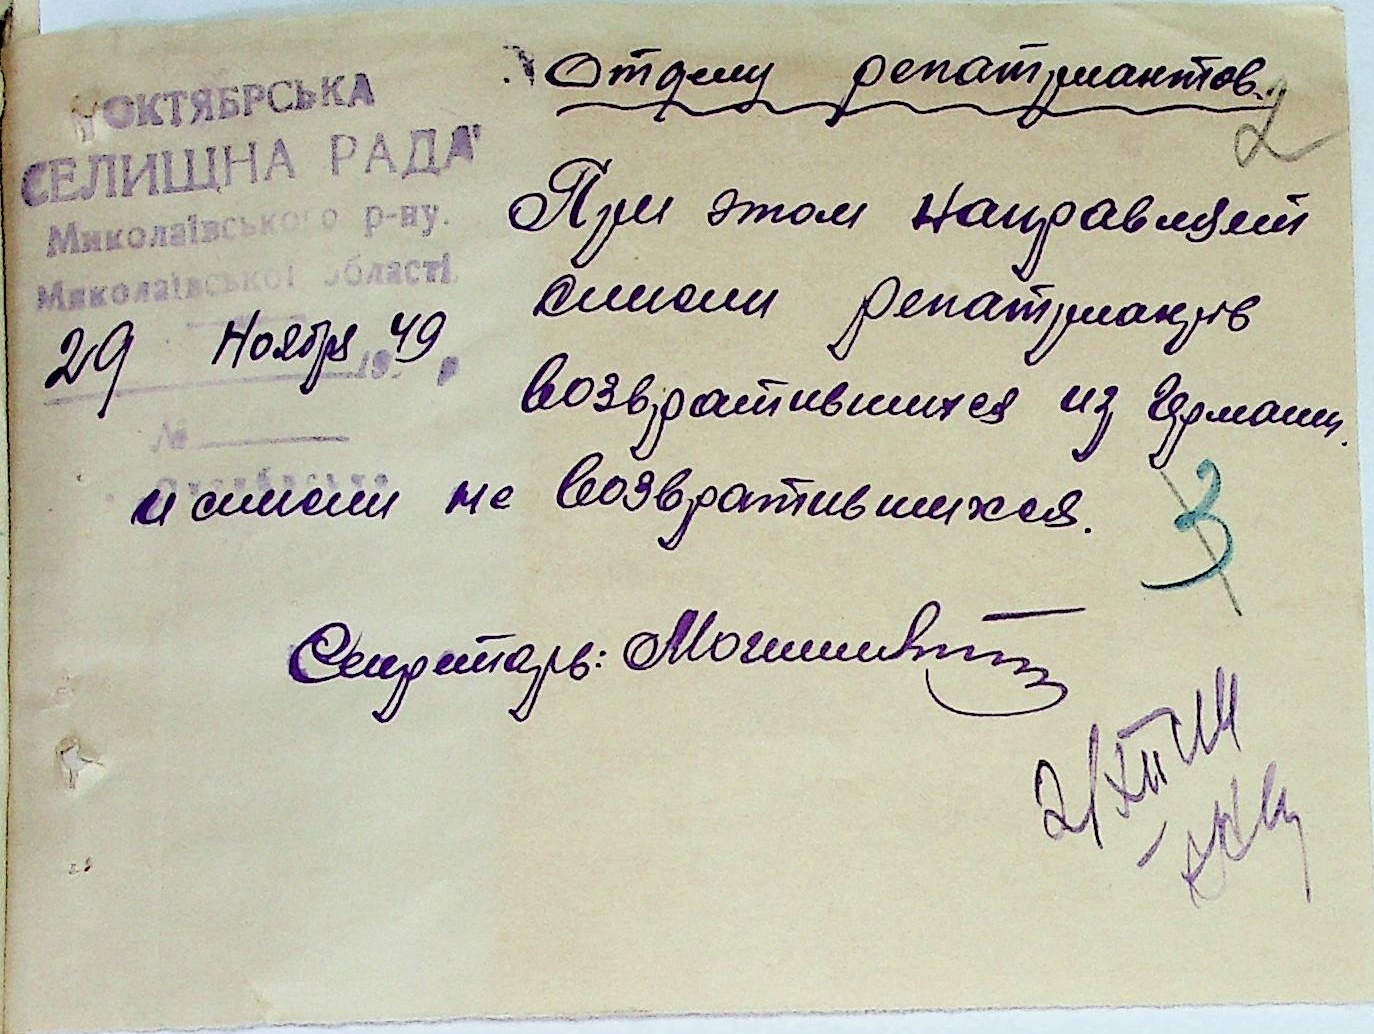 ОКТЯБРСЬКА
СЕЛИЩНА РАДА
Миколаївського р-ну.
Миколаївської області
29 Ноября 49
19
№
Отделу репатриантов.
2
При этом направляем
списки репатриантов
возвратившихся из Германии.
и списки не возвратившихся.
3
Секретарь: